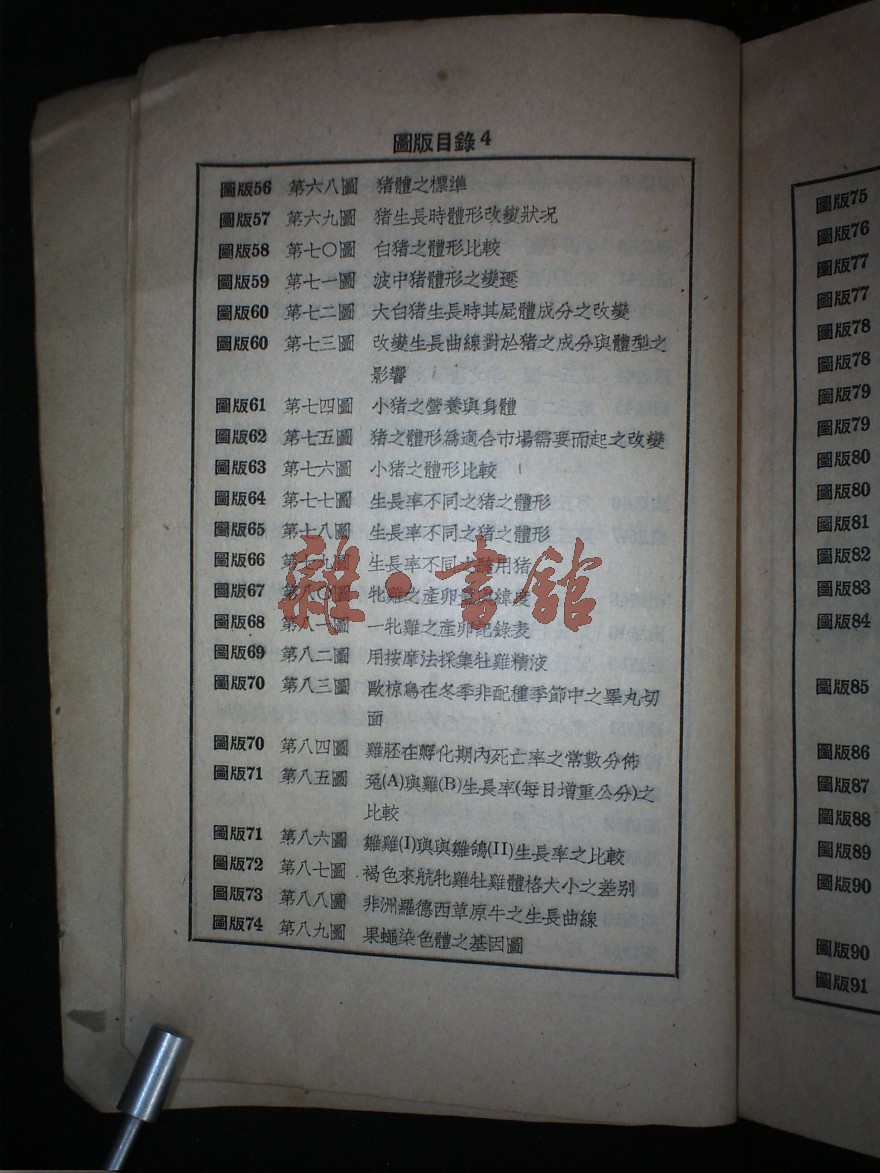 圖版目錄4
圖版56 第六八圖 猪體之標準
圖版57 第六九圖 猪生長時體形改變狀况
圖版58 第七〇圖 白猪之體形比較
圖版59 第七一圖 波中猪體形之變遷
圖版60 第七二圖 大白猪生長時其屍體成分之改變
圖版60 第七三圖 改變生長曲線對於猪之成分與體型之
影響
圖版61 第七四圖 小猪之營養與身體
圖版62 第七五圖 猪之體形爲適合市場需要而起之改變
圖版63 第七六圖 小猪之體形比較
圖版64 第七七圖 生長率不同之猪之體形
圖版65 第七八圖 生長率不同之猪之體形
圖版66 第七九圖 生長率不同之醃用猪
圖版67 第八〇圖 牝雞之產卵量與緯度
圖版68 第八一圖 一牝雞之產卵紀錄表
圖版69 第八二圖 用按摩法採集牡雞精液
圖版70 第八三圖 歐椋鳥在冬季非配種季節中之睪丸切
面
圖版70 第八四圖 雞胚在孵化期內死亡率之常數分佈
圖版71 第八五圖 兔(A)與雞(B)生長率(每日增重公分)之
比較
圖版71 第八六圖 雛雞(I)與與雛鴿(II)生長率之比較
圖版72 第八七圖 褐色來航牝雞牡雞體格大小之差别
圖版73 第八八圖 非洲羅德西草原牛之生長曲線
圖版74 第八九圖 果蠅染色體之基因圖
雜·書館
圖版75
圖版76
圖版77
圖版77
圖版78
圖版78
圖版79
圖版79
圖版80
圖版80
圖版81
圖版82
圖版83
圖版84
圖版85
圖版86
圖版87
圖版88
圖版89
圖版90
圖版90
圖版91